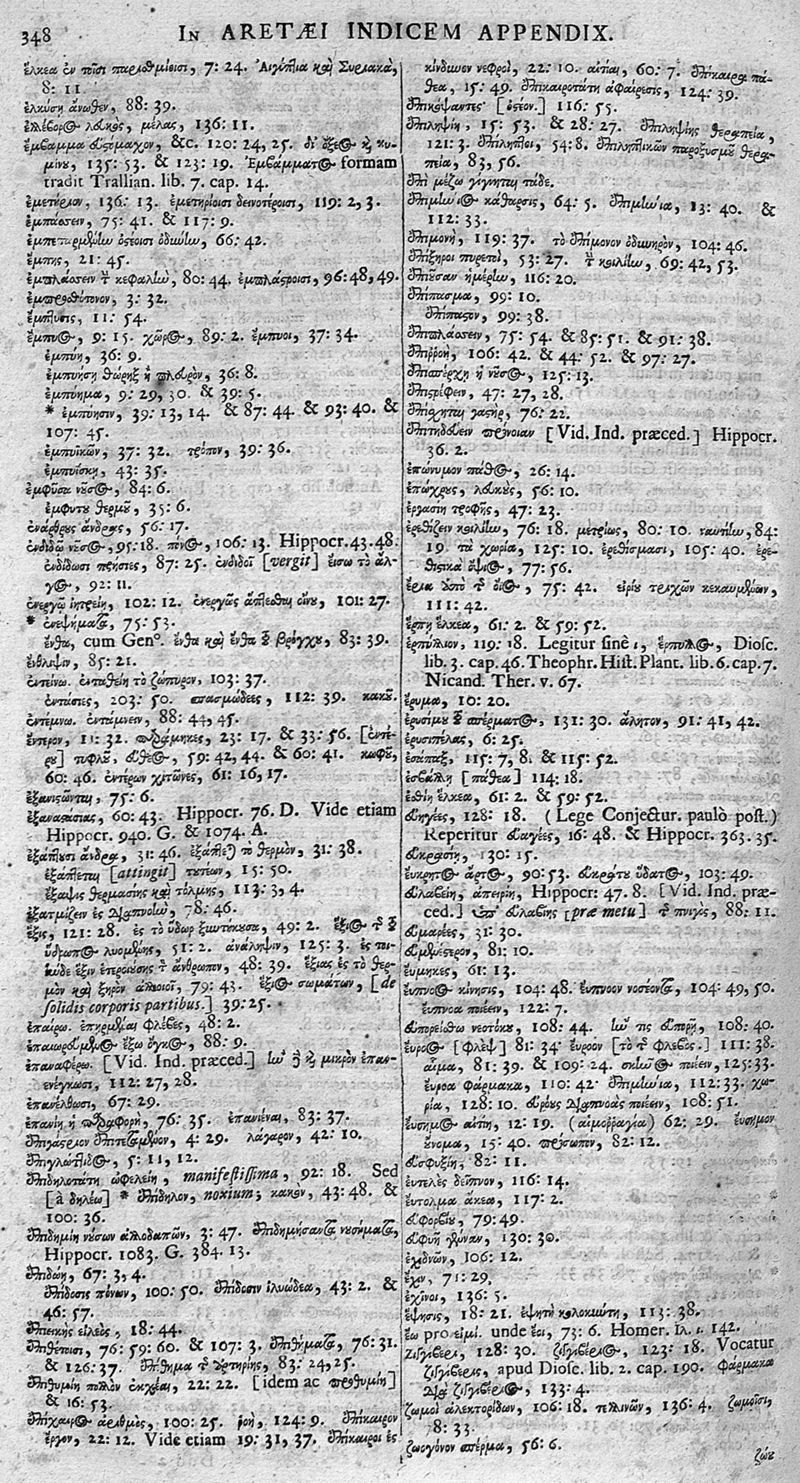 348
IN ARETÆI INDICEM APPENDIX.
ἕλκεα ἐν τοῖσι παρισθμίοισι, 7: 24. Αἰγύπτια καὶ Συριακὰ,
8: 11.
ἑλκύση ἄνωθεν, 88: 39.
ἐλλέβορος λευκὸς, μέλας, 136: 11.
ἔμβαμμα εὐστόμαχον, &c. 120: 24, 25. δι' ὄξεος καὶ κυ-
μίνου, 135: 53. & 123: 19. Ἐμβάμματος formam
tradit Trallian. lib. 7. cap. 14.
ἐμετήριον, 136: 13. ἐμετηρίοισι δεινοτέροισι, 119: 2, 3.
ἐμπάσσειν, 75: 41. & 117: 9.
66: 42.
ἔμπης, 21: 45.
ἐμπλάσσειν τὴν κεφαλὴν, 80: 44. ἐμπλάστροισι, 96: 48, 49.
ἐμπροσθότονον, 3: 32.
ἔμπτυσις, 11: 54.
ἔμπυος, 9: 15. χῶρος, 89: 2. ἔμπυοι, 37: 34.
ἐμπύη, 36: 9.
ἐμπυήση θώρηξ ἢ πλευρὸν, 36: 8.
ἐμπύημα, 9: 29, 30. & 39: 5.
* ἐμπύησιν, 39: 13, 14. & 87: 44. & 93: 40. &
107: 45.
ἐμπυϊκῶν, 37: 32. τρόπον, 39: 36.
ἐμπυΐσκῃ, 43: 35.
ἐμφῦσα νοῦσος, 84: 6.
ἐμφύτου θερμοῦ, 35: 6.
ἐνάρθρους ἄνδρας, 56: 17.
ἐνδιδοῖ νοῦσος, 95: 18. πόνος, 106: 13. Hippocr. 43. 48.
87: 25. ἐνδιδοῖ [vergit] εἴσω τὸ ἄλ-
γος, 92: 11.
102: 12. 101: 27.
* ἑνεψήματα, 75: 53.
ἔνθα, cum Gen°. ἔνθα καὶ ἔνθα τοῦ βρόγχου, 83: 39.
ἔνθλιψιν, 85: 21.
ἐντείνω. ἐνταθείη τὸ ζώπυρον, 103: 37.
ἐντάσιες, 203: 50. σπασμώδεες, 112: 39. κακοῦ.
ἐντέμνω. ἐντάμνειν, 88: 44, 45.
ἔντερον, 11: 32. 23: 17. & 33: 56. [ἐντέ-
ρου] τυφλοῦ, εὐθέος, 59: 42, 44. & 60: 41. κωφοῦ,
60: 46. ἐντέρων χιτῶνες, 61: 16, 17.
75: 6.
ἐξαναστάσιας, 60: 43. Hippocr. 76. D. Vide etiam
Hippocr. 940. G. & 1074. A.
ἐξάπτουσι ἄνδρα, 31: 46. ἐξάπτει τὸ θερμὸν, 31: 38.
ἐξάπτεται [attingit] τουτέων, 15: 50.
ἔξαψις θερμασίης καὶ τόλμης, 113: 3, 4.
ἐξατμίζειν ἐς διαπνοὴν, 78: 46.
ἕξις, 121: 28. ἐς τὸ ὕδωρ ξυντήκουσα, 49: 2. ἕξιος τῆς τοῦ
ὕδρωπος λυομένης, 51: 2. ἀνάληψιν, 125: 3.
ἕξιν ἑτεροιούσης τὸν ἄνθρωπον, 48: 39. ἕξιας ἐς τὸ θερ-
μὸν καὶ ξηρὸν 79: 43. ἕξιος σωμάτων, [de
solidis corporis partibus.] 39: 25.
ἐπαίρω. ἐπηρμέναι φλέβες, 48: 2.
ἐπαιωρεύμενος ἔξω ὄγκος, 88: 9.
ἐπαναφέρω. [Vid. Ind. præced.] ἢν δὲ καὶ μικρὸν ἐπαν-
ενέγκωσι, 112: 27, 28.
ἐπανέλθωσι, 67: 29.
ἐπανίῃ ἡ διαφορὴ, 76: 35. ἐπανιέναι, 83: 37.
ἐπιγάστριον ἐπιτεταμένον, 4: 29. λάγαρον, 42: 10.
ἐπιγλωττίδος, 5: 11, 12.
ἐπιδηλοτάτη ὠφελείη, manifestissima, 92: 18. Sed
[à δηλέω] * ἐπίδηλον, noxium; κακὸν, 43: 48. &
100: 36.
ἐπιδημίη νούσων ἀλλοδαπῶν, 3: 47. ἐπιδημήσαντα νουσήματα,
Hippocr. 1083. G. 384. 13.
67: 3, 4.
ἐπίδοσις πόνων, 100: 50. ἐπίδοσιν ἰλυώδεα, 43: 2. &
46: 57.
ἐπιεικὴς εἰλεὸς, 18: 44.
76: 59. 60. & 107: 3. ἐπιθήματα, 76: 31.
& 126: 37. ἐπίθημα τῆς ἀρτηρίης, 83: 24, 25.
ἐπιθυμίη 22: 22. [idem ac προθυμίη]
& 16: 53.
ἐπίκαιρος ἀριθμὸς, 100: 25. ῥοὴ, 124: 9. ἐπίκαιρον
ἔργον, 22: 12. Vide etiam 19: 31, 37. ἐπίκαιροι ἐς
κίνδυνον νεφροὶ, 22: 10. αἰτίαι, 60: 7. ἐπίκαιρα πά-
θεα, 15: 49. ἐπικαιροτάτη ἀφαίρεσις, 124: 39.
ἐπικόψαντες [ὀστέον.] 116: 55.
ἐπιληψίη, 15: 53. & 28: 27. ἐπιληψίης θεραπεία,
121: 3. ἐπίληπτοι, 54: 8. ἐπιληπτικῶν παροξυσμοῦ θερα-
πεία, 83, 56.
ἐπὶ μέζω γίγνηται τάδε.
ἐπιμήνιος κάθαρσις, 64: 5. ἐπιμήνια, 13: 40. &
112: 33.
ἐπιμονὴ, 119: 37. τὸ ἐπίμονον ὀδυνηρὸν, 104: 46.
ἐπίξηροι πυρετοὶ, 53: 27. τὴν κοιλίην, 69: 42, 53.
ἐπιοῦσαν ἡμέρην, 116: 20.
ἐπίπασμα, 99: 10.
ἐπίπαστον, 99: 38.
ἐπιπλάσσειν, 75: 54. & 85: 51. & 91: 38.
ἐπιρροὴ, 106: 42. & 44: 52. & 97: 27.
ἐπισπέρχῃ ἡ νοῦσος, 125: 13.
ἐπιστρέφειν, 47: 27, 28.
ἐπίσχηται γαστὴρ, 76: 22.
ἐπιτηδεύειν πρόνοιαν [Vid. Ind. præced.] Hippocr.
36. 2.
ἐπώνυμον πάθος, 26: 14.
ἐπώχρους, λευκοὺς, 56: 10.
ἐργασίη τροφῆς, 47: 23.
ἐρεθίζειν κοιλίην, 76: 18. μετρίως, 80: 10. ναυτίην, 84:
19. τὰ χωρία, 125: 10. ἐρεθίσμασι, 105: 40. ἐρε-
77: 56.
ἔρια ὑπὸ τῆς ὄϊος, 75: 42. εἰρίου τριχῶν κεκαυμένων,
111: 42.
ἕρπῃ ἕλκεα, 61: 2. & 59: 52.
ἑρπύλλιον, 119: 18. Legitur sinè ι, ἕρπυλλος, Diosc.
lib. 3. cap. 46. Theophr. Hist. Plant. lib. 6. cap. 7.
Nicand. Ther. v. 67.
ἔρυμα, 10: 20.
ἐρυσίμου τοῦ σπέρματος, 131: 30. ἄλητον, 91: 41, 42.
ἐρυσιπέλας, 6: 25.
ἐσάπαξ, 115: 7, 8. & 115: 52.
ἐσβάλλῃ [πάθεα] 114: 18.
ἐσθίῃ ἕλκεα, 61: 2. & 59: 52.
εὐηγέες, 128: 18. (Lege Conjectur. paulò post.)
Reperitur εὐαγέες, 16: 48. & Hippocr. 363. 35.
εὐκρασίη, 130: 15.
εὔκρητος ἄρτος, 90: 53. εὐκρήτου ὕδατος, 103: 49.
εὐλαβείη, ἀπειρίη, Hippocr: 47. 8. [Vid. Ind. præ-
ced.] ὑπὸ εὐλαβείης [præ metu] τῆς πνιγὸς, 88: 11.
εὐμαρέες, 31: 30.
εὐμενέστερον, 81: 10.
εὐμήκης, 61: 13.
εὔπνοος κίνησις, 104: 48. εὔπνοον νοσέοντα, 104: 49, 50.
εὔπνοα ποιέειν, 122: 7.
εὐπορείσθω νεοτόκου, 108: 44. ἤν τις εὐπορῇ, 108: 40.
εὔροος [φλὲψ] 81: 34. εὔροον [τὸ τῆς φλεβός.] 111: 38.
αἷμα, 81: 39. & 109: 24. ποιέειν, 125: 33.
εὔροα φάρμακα, 110: 42. ἐπιμήνια, 112: 33. χω-
ρία, 128: 10. εὔρους διαπνοὰς ποιέειν, 108: 51.
εὔσημος αἰτίη, 12: 19. (αἱμορραγία) 62: 29. εὔσημον
οὔνομα, 15: 40. πρόσωπον, 82: 12.
εὐσφυξίη, 82: 11.
εὐτελὲς δεῖπνον, 116: 14.
εὔτολμα ἄκεα, 117: 2.
εὐφορβίου, 79: 49.
130: 30.
ἐχιδνῶν, 106: 12.
ἔχιν, 71: 29,
ἐχῖνοι, 136: 5.
ἕψησις, 18: 21. ἑψητὴ κολοκύντη, 113: 38.
ἔω pro εἰμί. unde ἔοι, 73: 6. Homer. Ιλ. ι. 142.
ζιγγίβερι, 128: 30. ζιγγιβέρεος, 123: 18. Vocatur
ζιγγίβερις, apud Diosc. lib. 2. cap. 190. φάρμακα
διὰ ζιγγιβέρεος, 133: 4.
ζωμοὶ ἀλεκτορίδων, 106: 18. πετεινῶν, 136: 4. ζωμοῖσι,
78: 33.
ζωογόνον σπέρμα, 56: 6.
ζώω